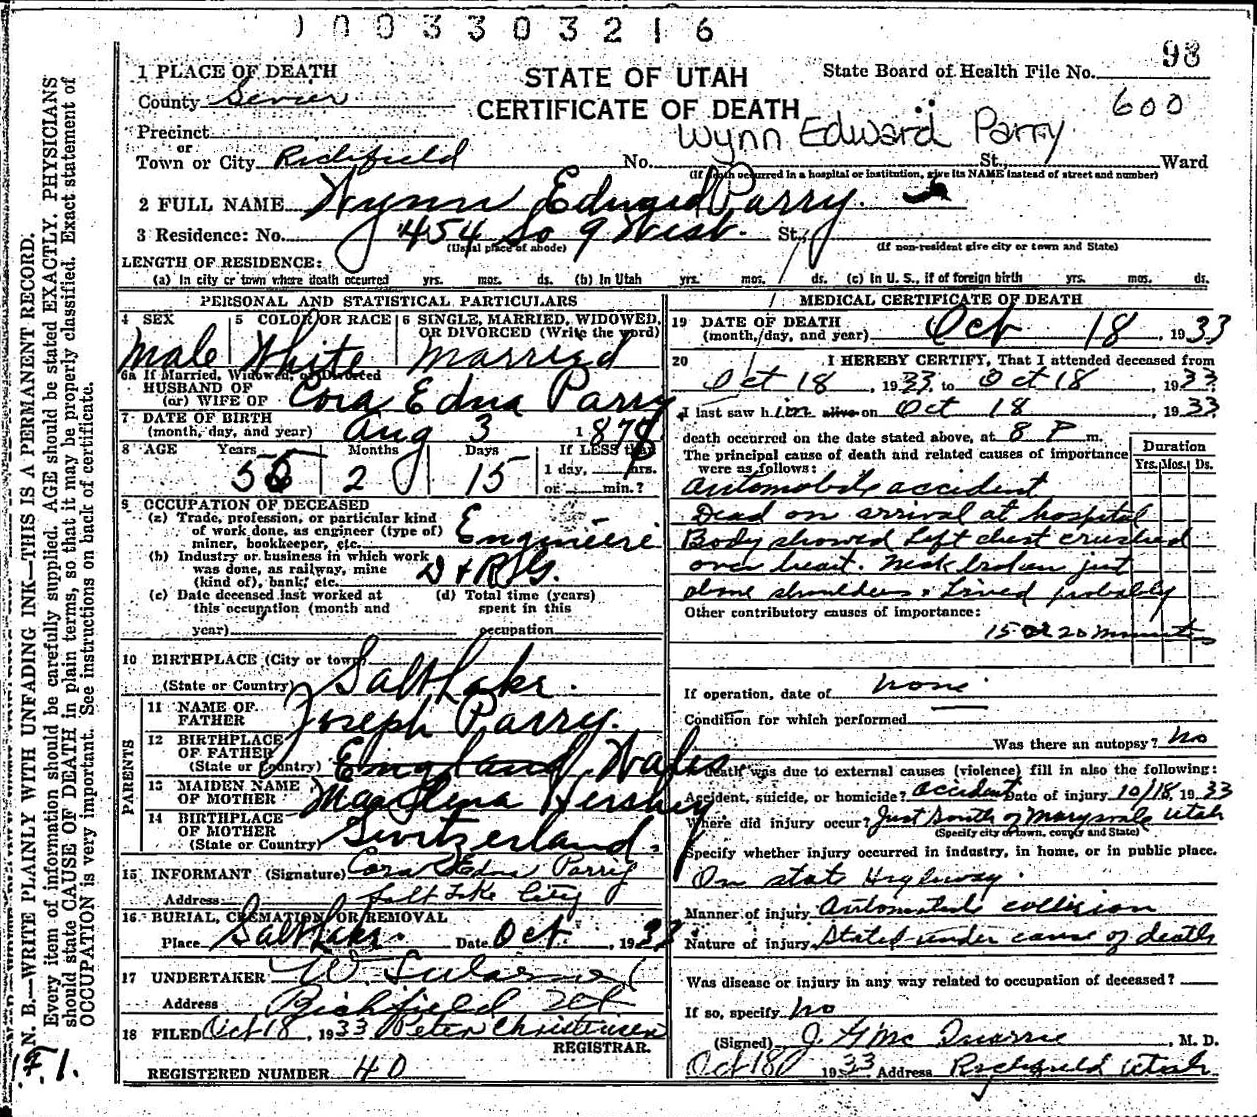 1003303216
93
STATE OF UTAH
CERTIFICATE OF DEATH
State Board of Health File No.
600
1 PLACE OF DEATH
County Sevier
Precinct
or
Town or City Richfield No. St., Ward
Wynn Edward Parry
(If death occurred in a hospital or institution, give its NAME instead of street and number)
2 FULL NAME Wynn Edward Parry.
3 Residence: No. 454 So 9 West. St.,
(Usual place of abode) (If non-resident give city or town and State)
LENGTH OF RESIDENCE:
(a) In city or town where death occurred yrs. mos. ds. (b) In Utah yrs. mos. ds. (c) In U. S., if of foreign birth yrs. mos. ds.
PERSONAL AND STATISTICAL PARTICULARS
4 SEX 5 COLOR OR RACE 6 SINGLE, MARRIED, WIDOWED, OR DIVORCED (Write the word)
Male White Married
6a If Married, Widowed, or Divorced
HUSBAND OF
(or) WIFE OF Cora Edna Parry
7 DATE OF BIRTH
(month, day, and year) Aug 3 1878
8 AGE Years Months Days If LESS than
1 day, hrs.
or min.?
2 15
9 OCCUPATION OF DECEASED
(a) Trade, profession, or particular kind
of work done, as engineer (type of)
miner, bookkeeper, etc. Engineeri
(b) Industry or business in which work
was done, as railway, mine
(kind of), bank, etc. D & R G.
(c) Date deceased last worked at
this occupation (month and
year)
(d) Total time (years)
spent in this
occupation
10 BIRTHPLACE (City or town)
(State or Country) Salt Lake.
PARENTS
11 NAME OF
FATHER Joseph Parry.
12 BIRTHPLACE
OF FATHER
(State or Country) England Wales
13 MAIDEN NAME
OF MOTHER Hershey
14 BIRTHPLACE
OF MOTHER
(State or Country) Switzerland.
15 INFORMANT (Signature) Cora Edna Parry
Address Salt Lake City
16 BURIAL, CREMATION OR REMOVAL
Place Salt Lake. Date Oct. , 1933
17 UNDERTAKER W.
Address Richfield Ut
18 FILED Oct 18, 1933 Peter Christensen
REGISTRAR.
REGISTERED NUMBER 40
MEDICAL CERTIFICATE OF DEATH
19 DATE OF DEATH
(month, day, and year) Oct 18 , 1933
20 I HEREBY CERTIFY, That I attended deceased from
Oct 18 , 1933, to Oct 18 , 1933
I last saw him alive on Oct 18 , 1933
death occurred on the date stated above, at 8 P m.
The principal cause of death and related causes of importance
were as follows:
Duration
Yrs. Mos. Ds.
Automobile accident
Dead on arrival at hospital
Body showed left chest crushed
over heart. Neck broken just
above shoulders. Lived probably
Other contributory causes of importance:
15 or 20 minutes
If operation, date of none
Condition for which performed
Was there an autopsy? no
If death was due to external causes (violence) fill in also the following:
Accident, suicide, or homicide? accident Date of injury 10/18, 1933
Where did injury occur? Just South of Marysvale Utah
(Specify city or town, county and State)
Specify whether injury occurred in industry, in home, or in public place.
On state Highway.
Manner of injury Automobile collision
Nature of injury Stated under cause of death
Was disease or injury in any way related to occupation of deceased?
If so, specify no
(Signed) J. G. Mc Quarrie , M. D.
Oct 18 1933 Address Richfield Utah
N. B.—WRITE PLAINLY WITH UNFADING INK—THIS IS A PERMANENT RECORD.
Every item of information should be carefully supplied. AGE should be stated EXACTLY. PHYSICIANS
should state CAUSE OF DEATH in plain terms, so that it may be properly classified. Exact statement of
OCCUPATION is very important. See instructions on back of certificate.